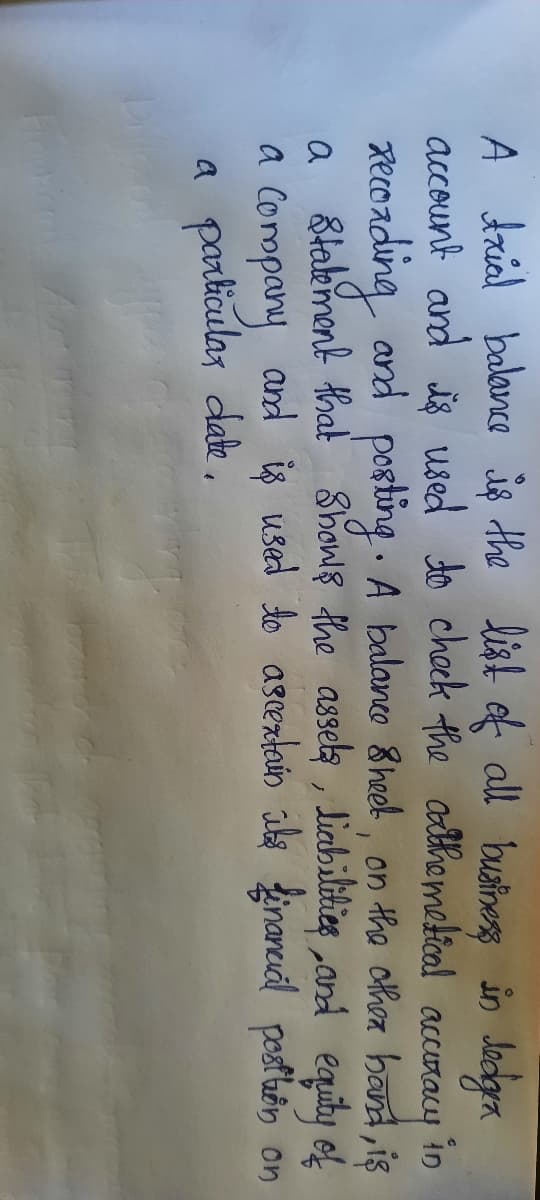 A trial balance is the list of all business in ledger
account and is used to check the arithemetical accuracy in
recording and posting. A balance sheet, on the other hand, is
a statement that shows the assets, liabilities, and equity of
a company and is used to ascertain its financial position on
a particular date.